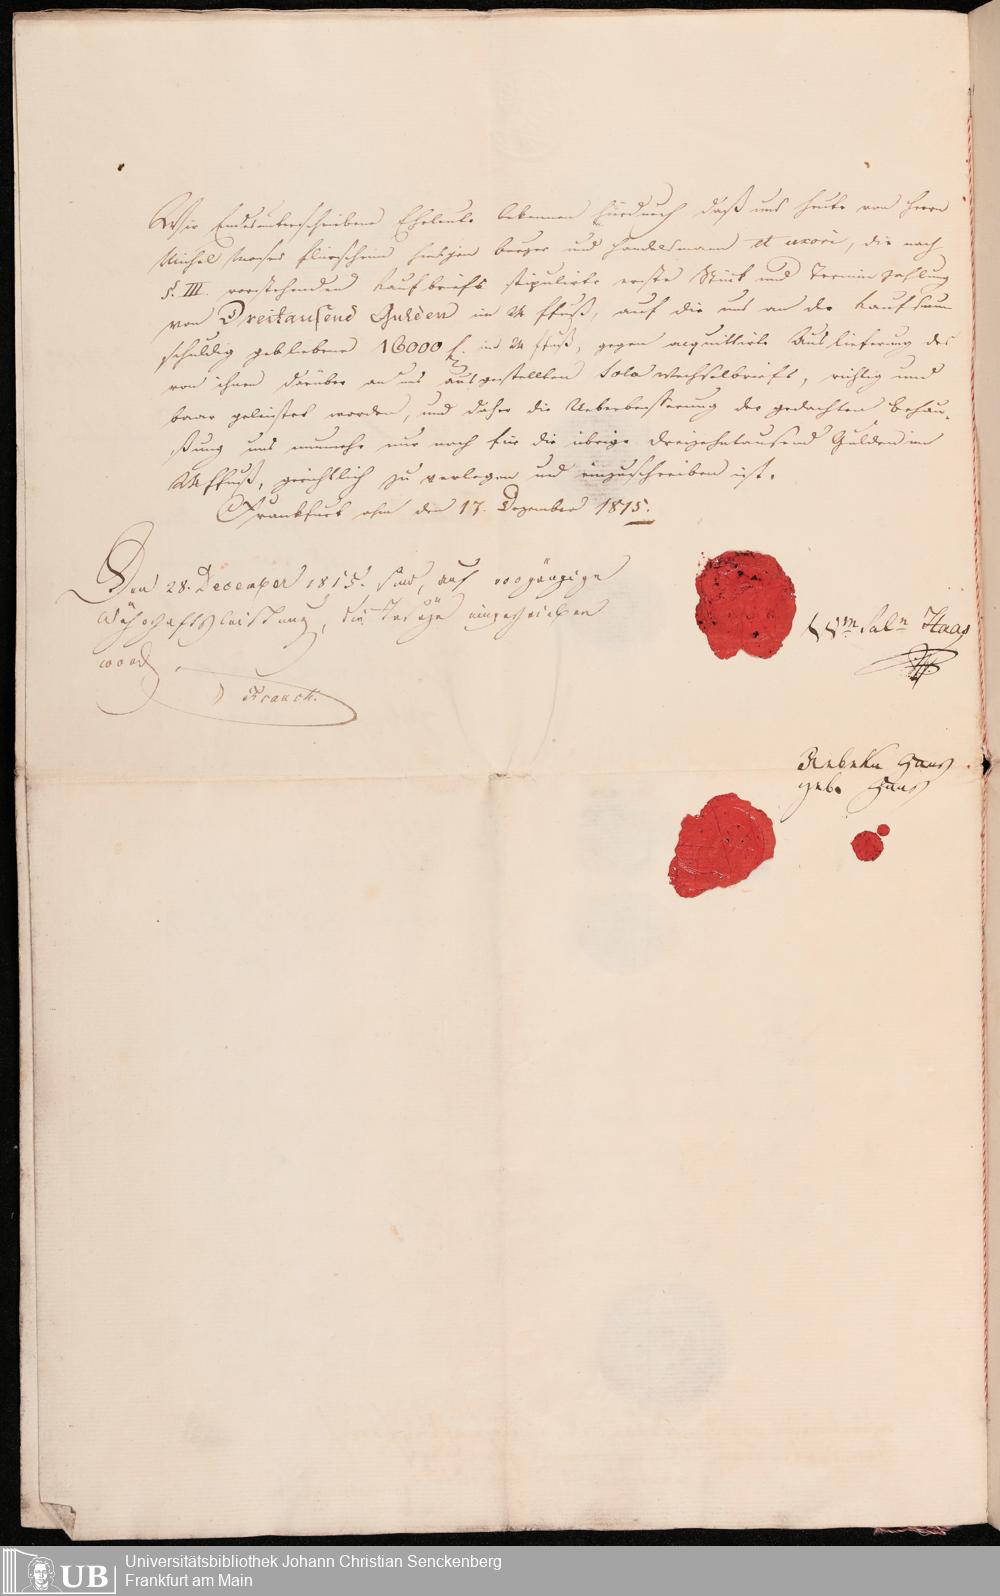 Wir Endesunterschriebene Eheleute bekennen hierdurch daß uns heute von Herrn
Michel Moses Flörsheim hiesigen burger und Handelsmann et uxori, die nach
§. III. vorstehenden Kaufbriefs stipulirte erste Stück und Termin zahlung
von Dreitausend Gulden im fuß, auf die uns an der Kaufsum
schuldig gebliebene 16000 f. im fuß, gegen acquittirte Auslieferung des
von ihnen darüber an uns ausgestellten Sola Wechselbriefs, richtig und
baar geleistet worden, und daher die Ueberbesserung der gedachten Behau-
ßung uns nunmehr nur noch für die übrige dreizehntausend Gulden im
fuß, gerichtlich zu verlegen und einzuschreiben ist.
Frankfurt den 17. Dezember 1815.
Den 28. December 1815. sind, auf vorgängige
Währschaftsleistung, die eingeschrieben
word
Franck.
Wm Saln Haas
Rebeka Haas
geb. Haas
UB
Universitätsbibliothek Johann Christian Senckenberg
Frankfurt am Main